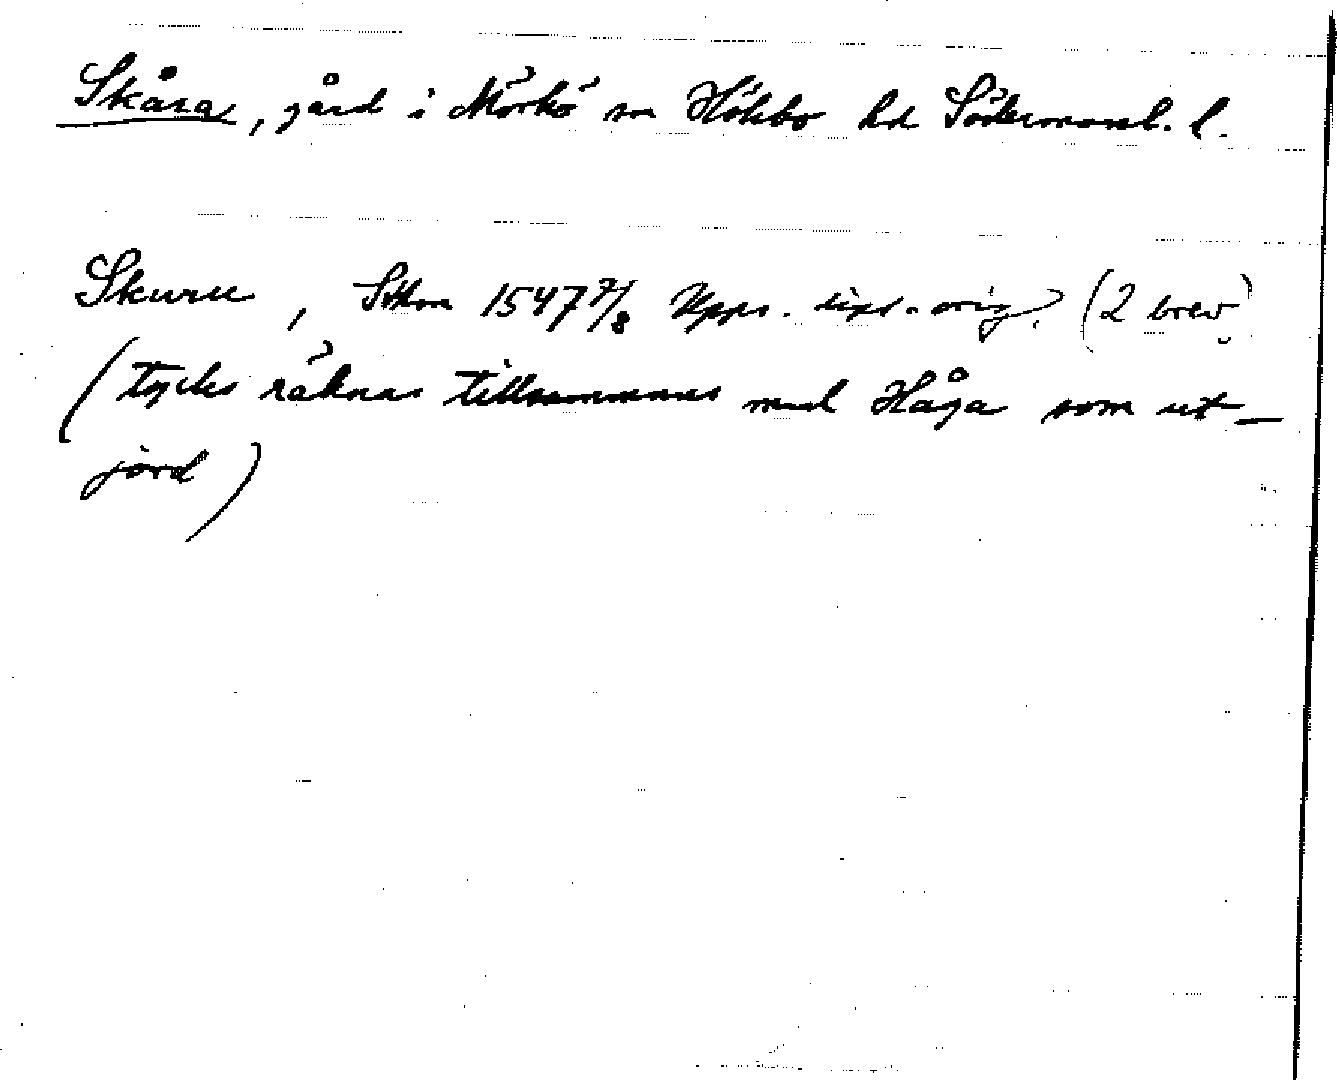 Skåra, gård i Mörkö sn Hölebo hd Södermanl. l.
Skuru, Sthm 1547 7/8 Upps. dipl.-orig. (2 brev)
(tycks räknas tillsammans med Håga som ut-
jord)